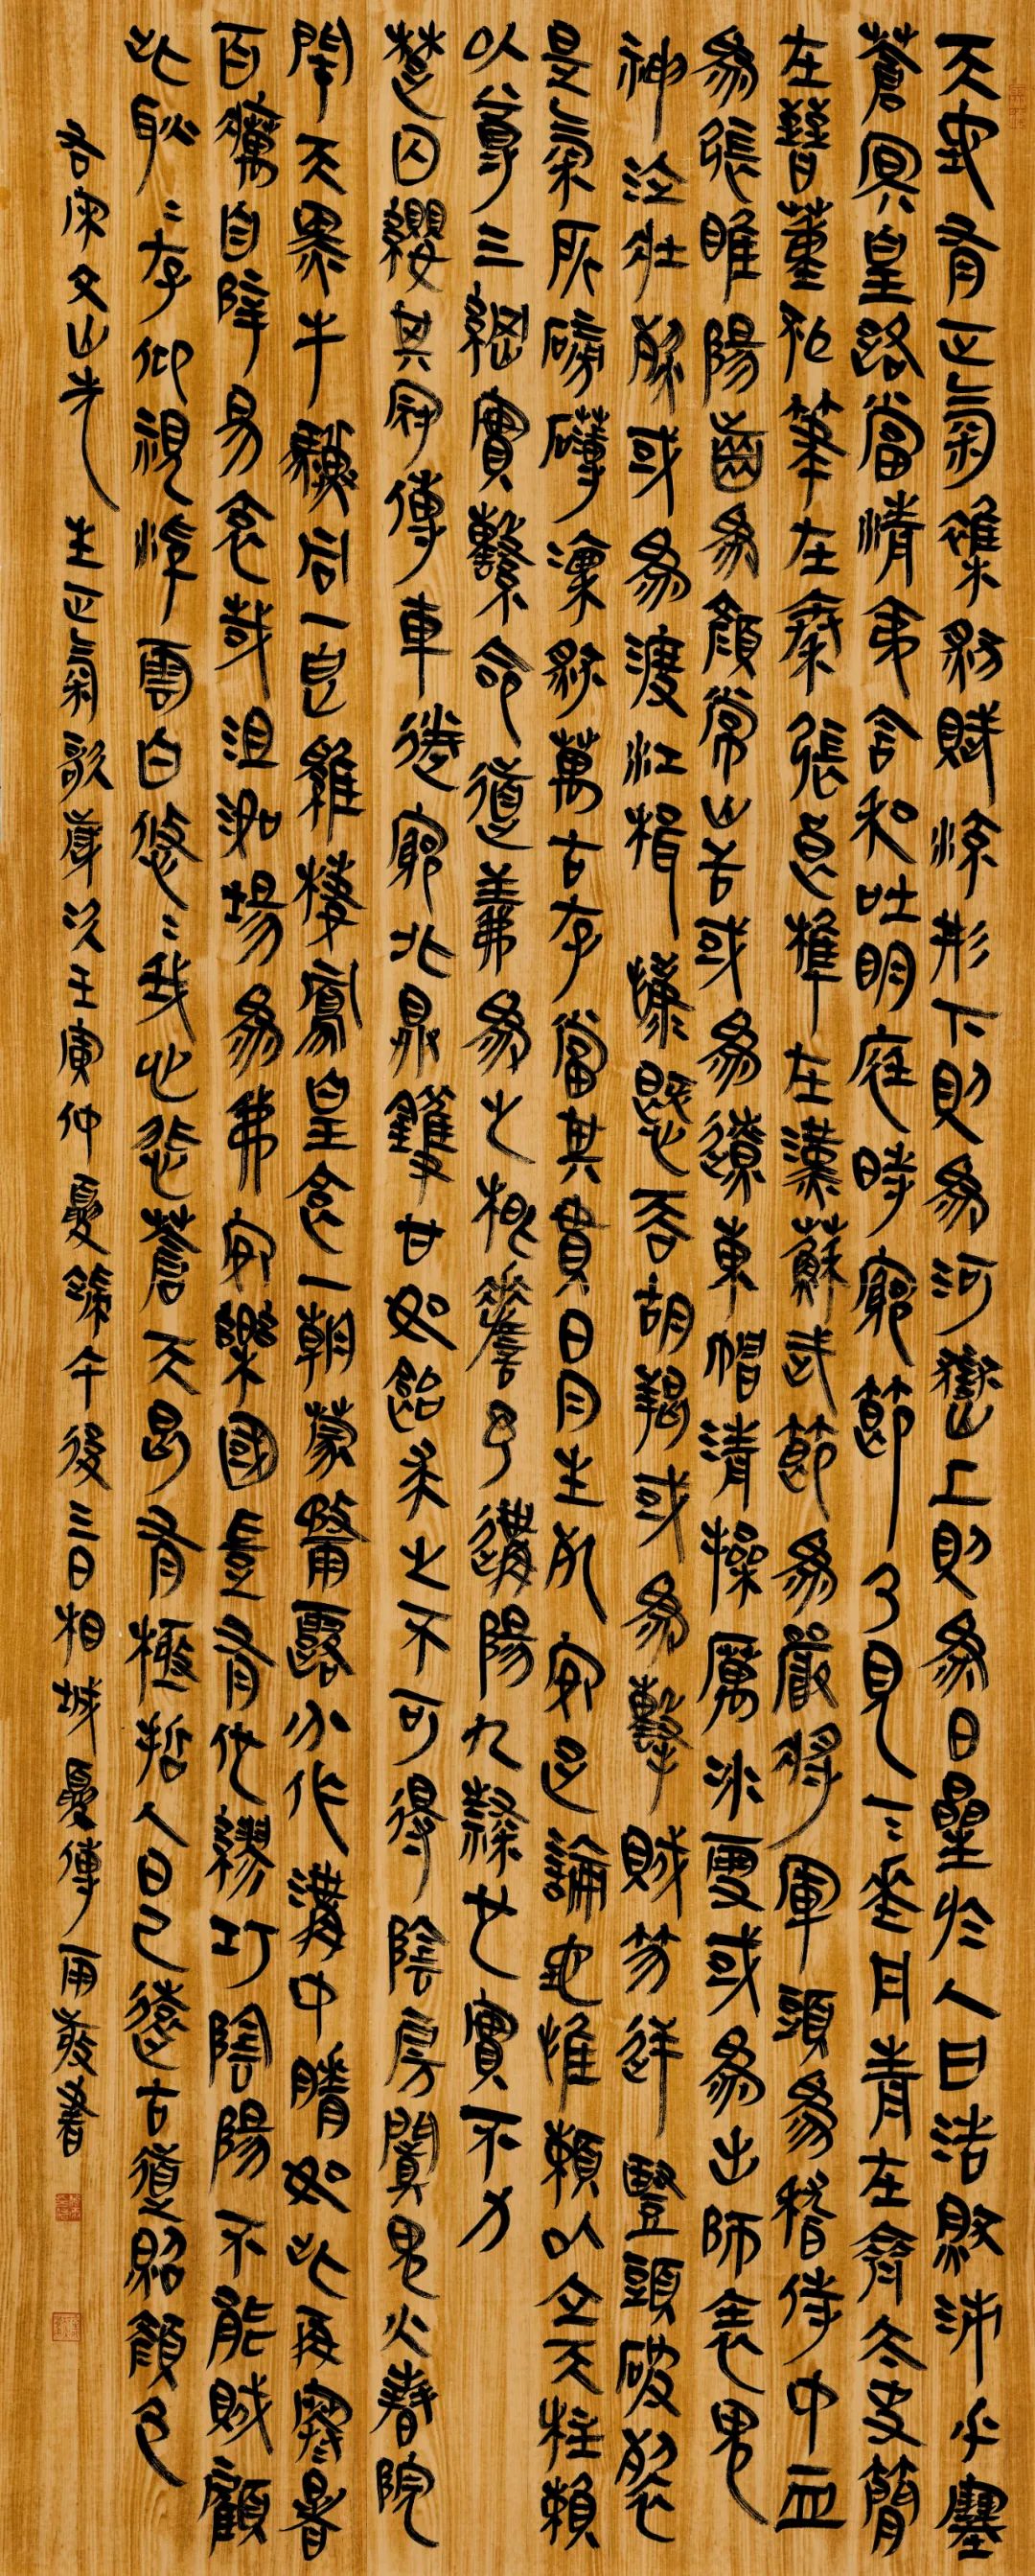 天地有正氣雜然賦流形下則為河嶽上則為日星於人曰浩然沛乎塞
蒼冥皇路當清夷含和吐明庭時窮節乃見一〻垂丹青在齊太史簡
在晉董狐筆在秦張良椎在漢蘇武節為嚴將軍頭為嵇侍中血
為張睢陽齒為顏常山舌或為遼東帽清操厲冰雪或為出師表鬼
神泣壯烈或為渡江楫慷慨吞胡羯或為擊賊笏逆豎頭破裂
是氣所磅礴凜烈萬古存當其貫日月生死安足論地維賴以立天柱賴
以尊三綱實繫命道義為之根嗟予遘陽九隸也實不力
楚囚纓其冠傳車送窮北鼎鑊甘如飴求之不可得陰房闃鬼火春院
閉天黑牛驥同一皂雞棲鳳皇食一朝蒙霧露分作溝中瘠如此再寒暑
百癘自辟易哀哉沮洳場為我安樂國豈有他繆巧陰陽不能賊顧
此耿〻存仰視浮雲白悠〻我心悲蒼天曷有極哲人日已遠古道照顏色
右宋文山先生正氣歌歲次壬寅仲夏端午後三日相城夏傳雨敬書